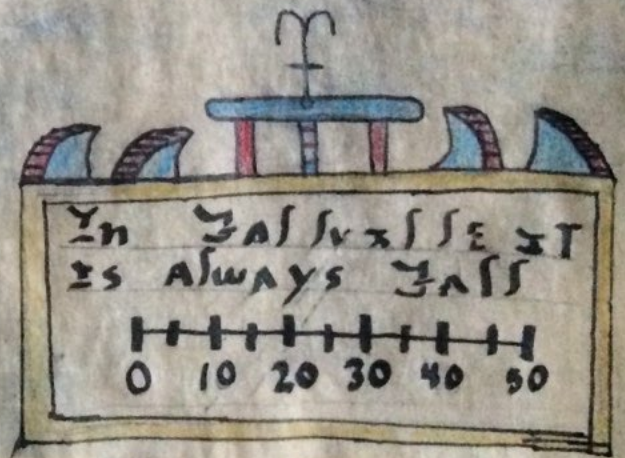 In Fallville IT
Is Always Fall
0 10 20 30 40 50